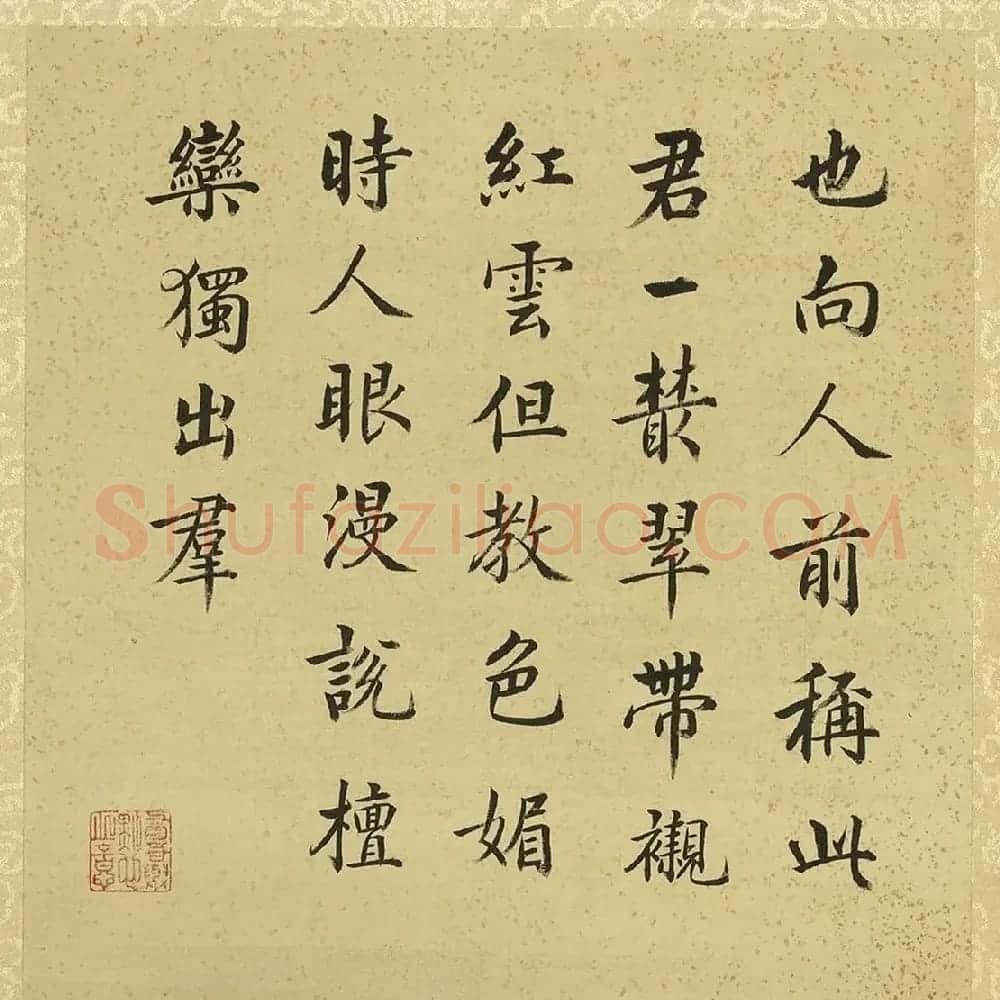 也向人前稱此
君一叢翠帶襯
紅雲但教色媚
時人眼漫說檀
欒獨出羣
Shufaziliao.COM